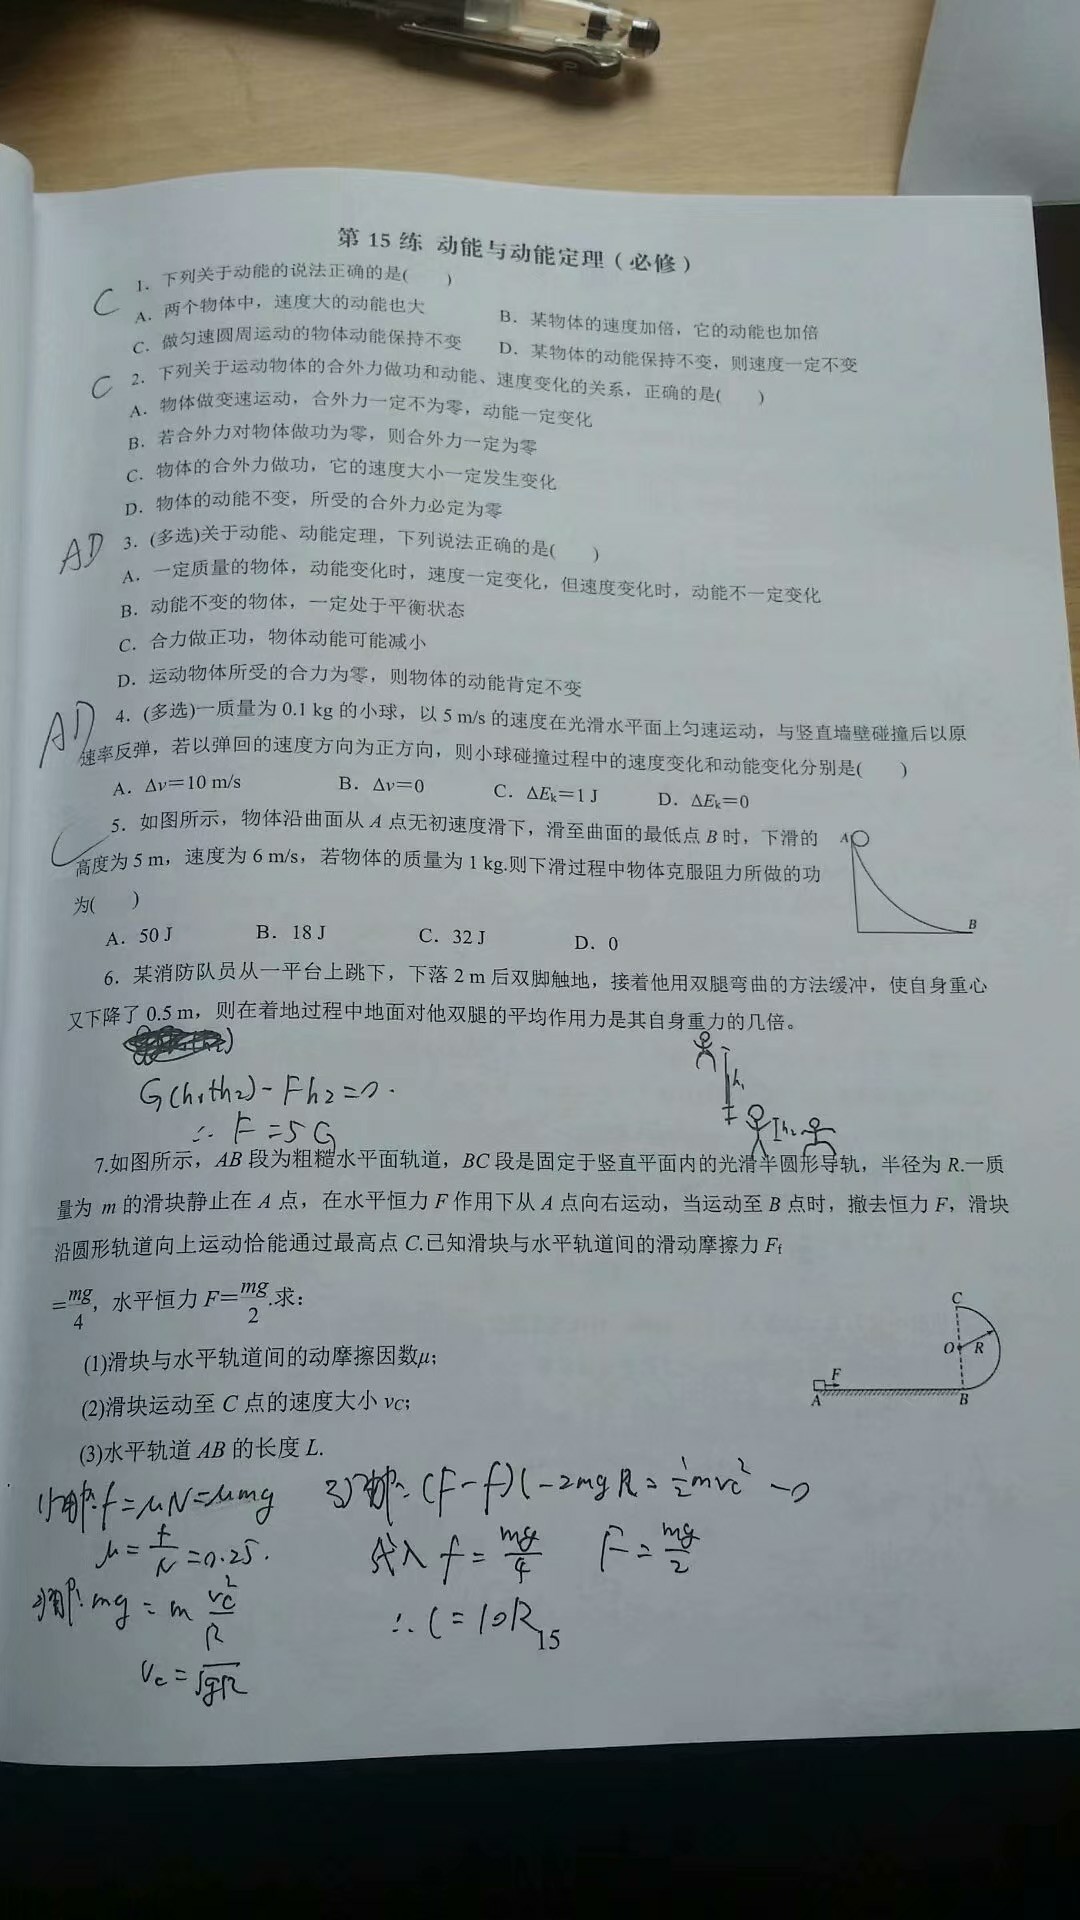 第 15 练 动能与动能定理（必修）
C 1．下列关于动能的说法正确的是(　　)
A．两个物体中，速度大的动能也大 B．某物体的速度加倍，它的动能也加倍
C．做匀速圆周运动的物体动能保持不变 D．某物体的动能保持不变，则速度一定不变
C 2．下列关于运动物体的合外力做功和动能、速度变化的关系，正确的是(　　)
A．物体做变速运动，合外力一定不为零，动能一定变化
B．若合外力对物体做功为零，则合外力一定为零
C．物体的合外力做功，它的速度大小一定发生变化
D．物体的动能不变，所受的合外力必定为零
AD 3．(多选)关于动能、动能定理，下列说法正确的是(　　)
A．一定质量的物体，动能变化时，速度一定变化，但速度变化时，动能不一定变化
B．动能不变的物体，一定处于平衡状态
C．合力做正功，物体动能可能减小
D．运动物体所受的合力为零，则物体的动能肯定不变
AD 4．(多选)一质量为 0.1 kg 的小球，以 5 m/s 的速度在光滑水平面上匀速运动，与竖直墙壁碰撞后以原
速率反弹，若以弹回的速度方向为正方向，则小球碰撞过程中的速度变化和动能变化分别是(　　)
A．Δv＝10 m/s B．Δv＝0 C．ΔEk＝1 J D．ΔEk＝0
C 5．如图所示，物体沿曲面从 A 点无初速度滑下，滑至曲面的最低点 B 时，下滑的
高度为 5 m，速度为 6 m/s，若物体的质量为 1 kg.则下滑过程中物体克服阻力所做的功
为(　　)
A．50 J B．18 J C．32 J D．0
A
B
6．某消防队员从一平台上跳下，下落 2 m 后双脚触地，接着他用双腿弯曲的方法缓冲，使自身重心
又下降了 0.5 m，则在着地过程中地面对他双腿的平均作用力是其自身重力的几倍。
G(h₁+h₂)-Fh₂=0.
∴ F=5G
h₁
h₂
7.如图所示，AB 段为粗糙水平面轨道，BC 段是固定于竖直平面内的光滑半圆形导轨，半径为 R.一质
量为 m 的滑块静止在 A 点，在水平恒力 F 作用下从 A 点向右运动，当运动至 B 点时，撤去恒力 F，滑块
沿圆形轨道向上运动恰能通过最高点 C.已知滑块与水平轨道间的滑动摩擦力 Ff
＝mg/4，水平恒力 F＝mg/2.求：
(1)滑块与水平轨道间的动摩擦因数μ；
(2)滑块运动至 C 点的速度大小 vC；
(3)水平轨道 AB 的长度 L.
C
O R
F
A B
f=μN=μmg
μ=f/N=0.25.
mg=m vc²/R
vc=√gR
(F-f)l-2mgR=½mvc²-0
代入 f=mg/4 F=mg/2
∴ l=10R
15